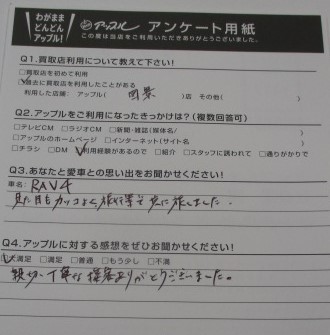 わがまま
どんどん
アップル!
アップル アンケート用紙
この度は当店をご利用いただきありがとうございました。
Q1.買取店利用について教えて下さい!
□買取店を初めて利用
☑過去に買取店を利用したことがある
利用した店舗: アップル( )店 その他( )
Q2.アップルをご利用になったきっかけは?(複数回答可)
□テレビCM □ラジオCM □新聞・雑誌(媒体名/ )
□アップルのホームページ □インターネット(サイト名 )
□チラシ □DM ☑利用経験があるので □紹介 □スタッフに誘われて □通りがかりで
Q3.あなたと愛車との思い出をお聞かせください!
車名: RAV4
見た目もカッコよく旅行等で共に旅しました。
Q4.アップルに対する感想をぜひお聞かせください!
☑大満足 □満足 □普通 □もう少し □不満
親切、丁寧な接客ありがとうございました。